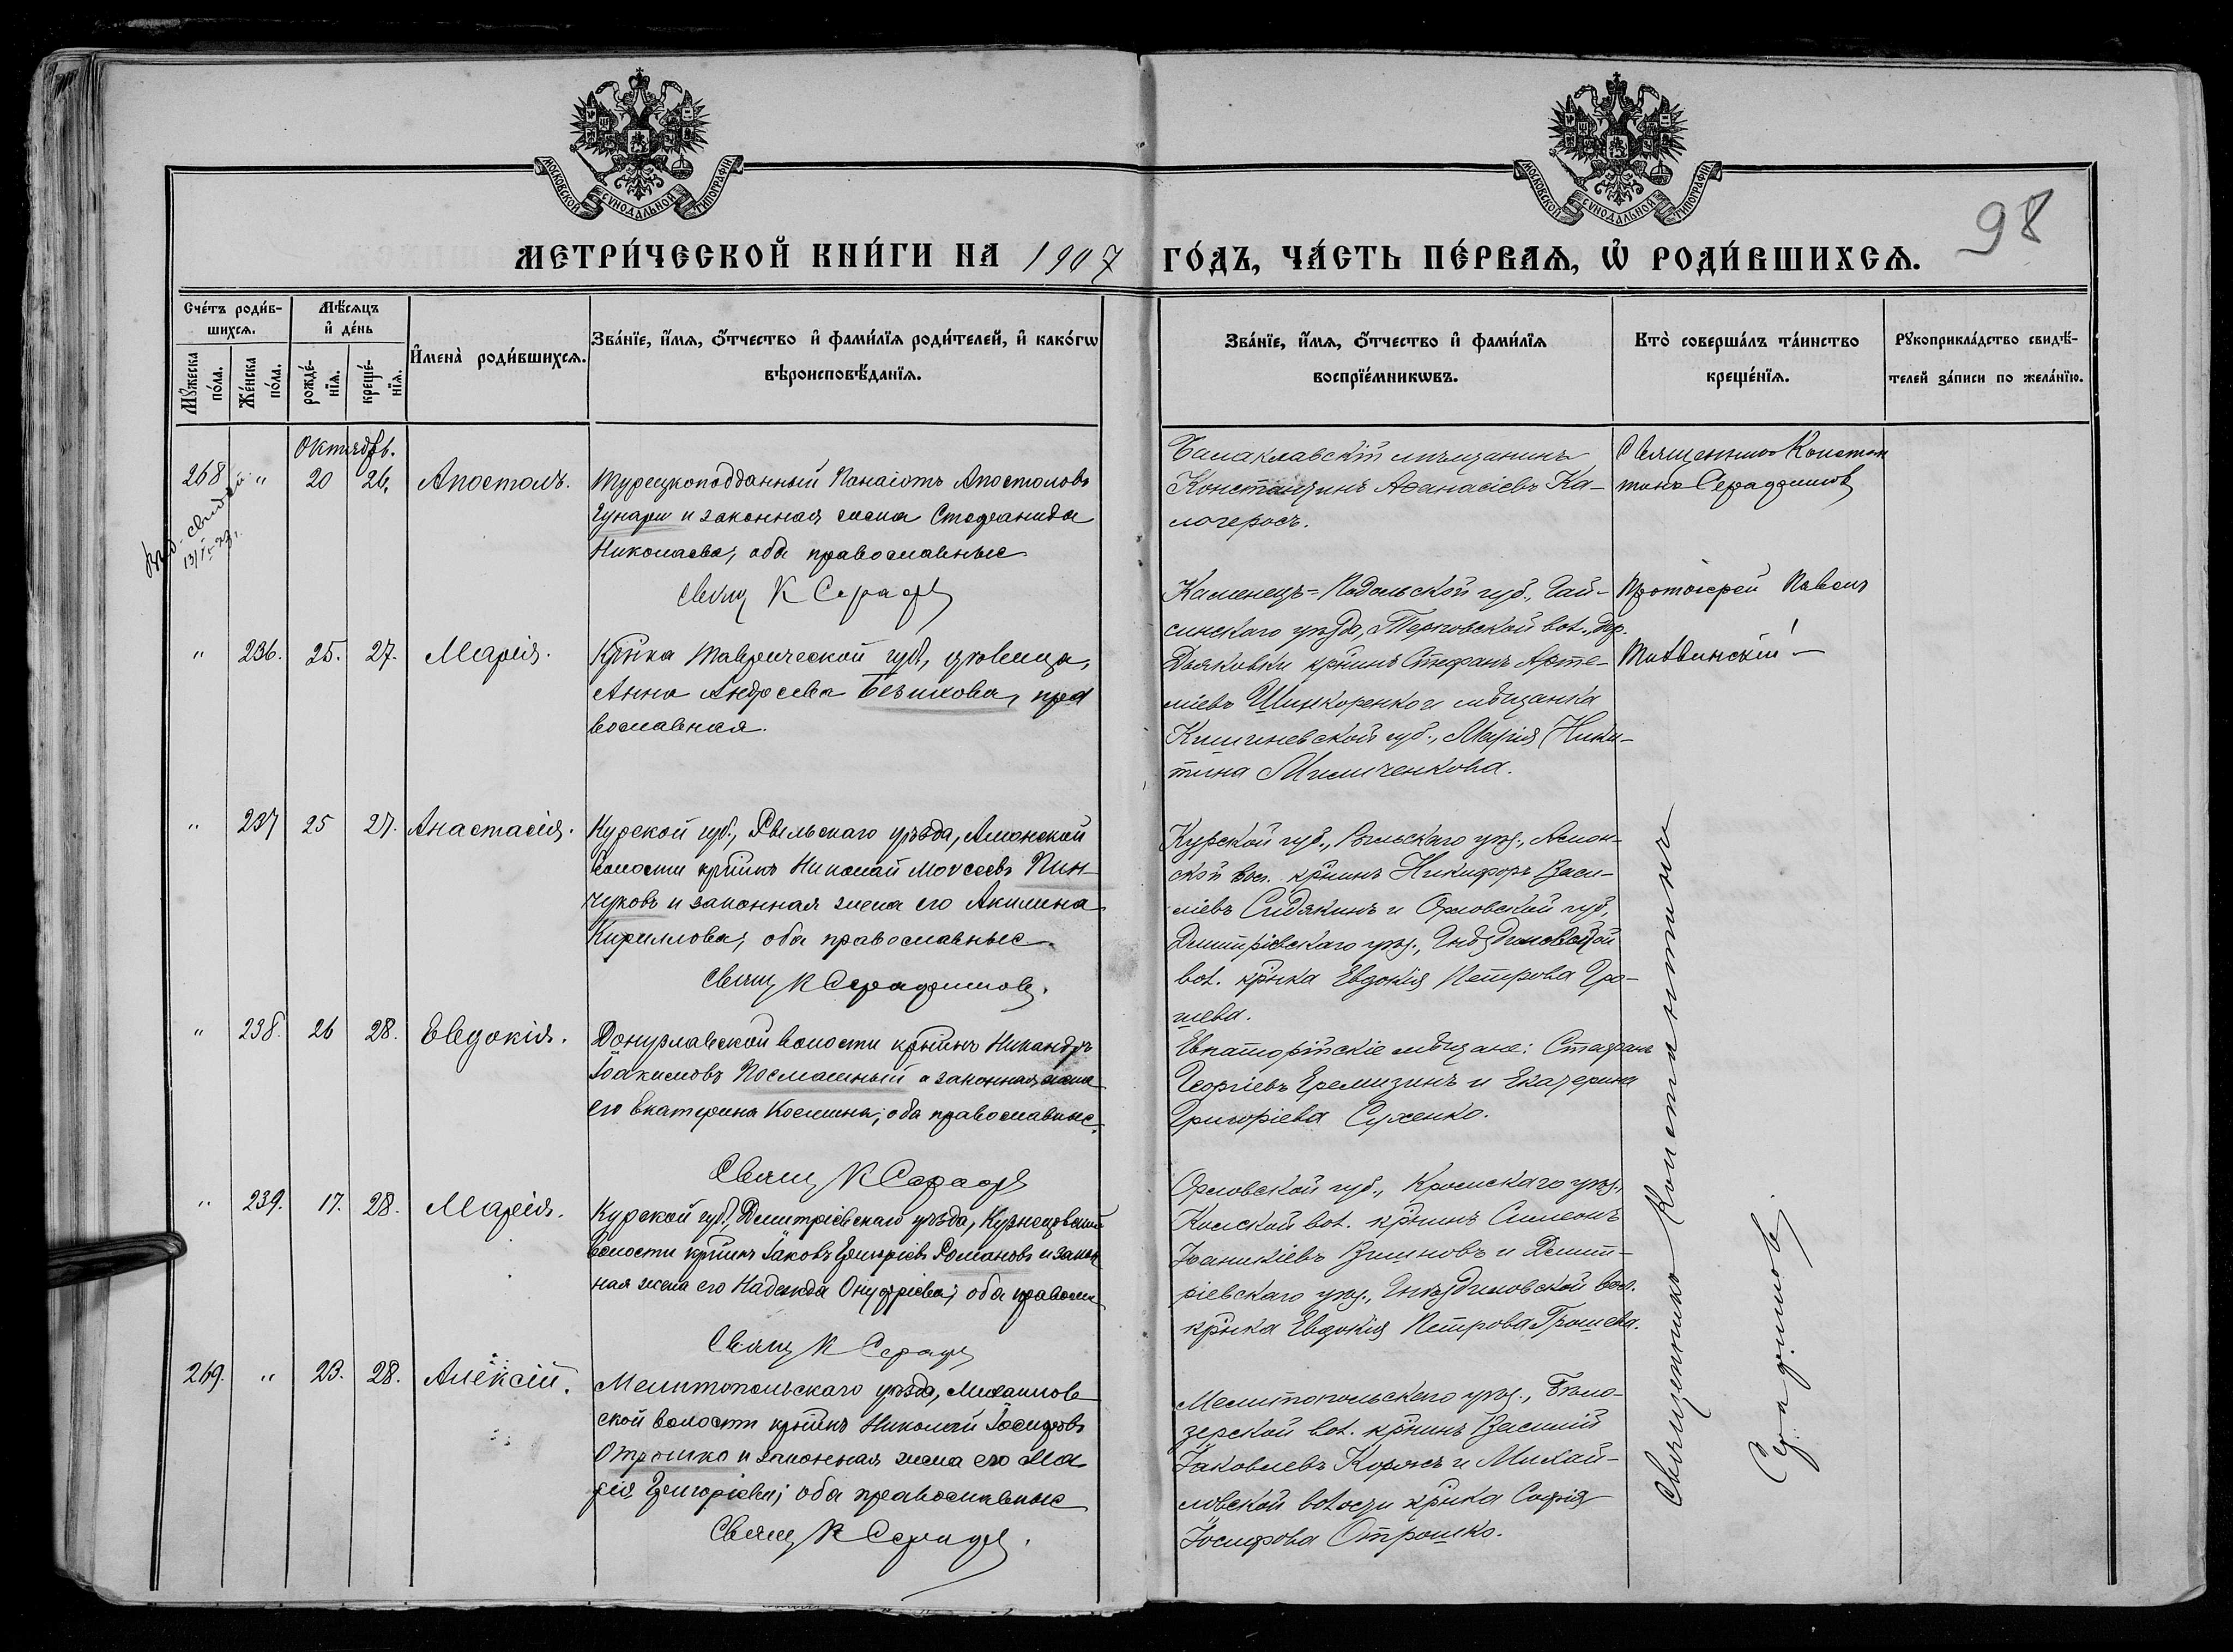 МОСКОВСКОЙ СѴНОДАЛЬНОЙ ТИПОГРАФІИ
МОСКОВСКОЙ СѴНОДАЛЬНОЙ ТИПОГРАФІИ
98
МЕТРИ́ЧЕСКОЙ КНИ́ГИ НА 1907 ГО́ДЪ, ЧА́СТЬ ПЕ́РВАѦ, Ѡ҆ РОДИ́ВШИХСѦ.
Сче́тъ роди́в-
шихсѧ.
Мꙋ́жеска
по́ла.
Же́нска
по́ла.
Мѣ́сѧцъ
и҆ де́нь
рожде́-
нїѧ.
креще́-
нїѧ.
И҆мена̀ роди́вшихсѧ.
Зва́нїе, и҆́мѧ, ѻ҆́тчество и҆ фами́лїѧ роди́телей, и҆ како́гѡ
вѣроисповѣ́данїѧ.
Зва́нїе, и҆́мѧ, ѻ҆́тчество и҆ фами́лїѧ
воспрїе́мникѡвъ.
Кто̀ соверша́лъ та́инство
креще́нїѧ.
Рꙋкоприкла́дство свидѣ́-
телей за́писи по жела́нїю.
Октябрь.
268 " 20 26. Апостолъ.
Турецкоподданный Панаіотъ Апостоловъ
Гунари и законная жена Стефанида
Николаева, оба православные
Свящ К Сераф
Балаклавскій мѣщанинъ
Константинъ Аѳанасіевъ Ка-
логеросъ.
Священникъ Констан
тинъ Серафимовъ
" 236. 25. 27. Марія.
Кр̃нка Таврической губ., дѣвица,
Анна Андреева Безикова, пра
вославная.
Каменецъ-Подольской губ., Гай-
синскаго уѣзда, Терновской вол., дер.
Дьяковки кр̃нинъ Стефанъ Арте-
міевъ Шинкоренко и мѣщанка
Кишиневской губ., Марія Ники-
тина Мимиченкова.
Протоіерей Павелъ
Тихвинскій
" 237 25 27. Анастасія.
Курской губ., Рыльскаго уѣзда, Амонской
волости кр̃нинъ Николай Моѵсеевъ Пин-
чуковъ и законная жена его Акилина
Кириллова; оба православные.
Свящ К Серафимовъ.
Курской губ., Рыльскаго уѣз., Амон-
ской вол. кр̃нинъ Никифоръ Васи-
ліевъ Сидякинъ и Орловской губ,
Дмитріевскаго уѣз., Гнѣздиловской
вол. кр̃нка Евдокія Петрова Гро-
шева.
" 238. 26 28. Евдокія.
Донузлавской волости кр̃нинъ Никандръ
Іоакимовъ Посмашный и законная жена
его Екатерина Космина; оба православные.
Свящ К Сераф
Евпаторійскіе мѣщане: Стефанъ
Георгіевъ Еремизинъ и Екатерина
Григоріева Сухенко.
" 239. 17. 28. Марія.
Курской губ, Дмитріевскаго уѣзда, Кузнецовской
волости кр̃нинъ Іаковъ Григоріевъ Романовъ и закон
ная жена его Надежда Онуфріева; оба правосл
Свящ К Сераф
Орловской губ., Кромскаго уѣз.,
вол. кр̃нинъ Симеонъ
Іоанникіевъ Зимновъ и Дмит-
ріевскаго уѣз., Гнѣздиловской вол.
кр̃нка Евдокія Петрова Грошева.
269. " 23. 28. Алексій.
Мелитопольскаго уѣзда, Михайлов
ской волости кр̃нинъ Николай Іосифовъ
Отрошко и законная жена его Ма
рія Григоріева; оба православные
Свящ К Сераф.
Мелитопольскаго уѣз., Бѣло-
зерской вол. кр̃нинъ Василій
Іаковлевъ Коржъ и Михай-
ловской волости кр̃нка Софія
Іосифова Отрошко.
Священникъ Константинъ
Серафимовъ